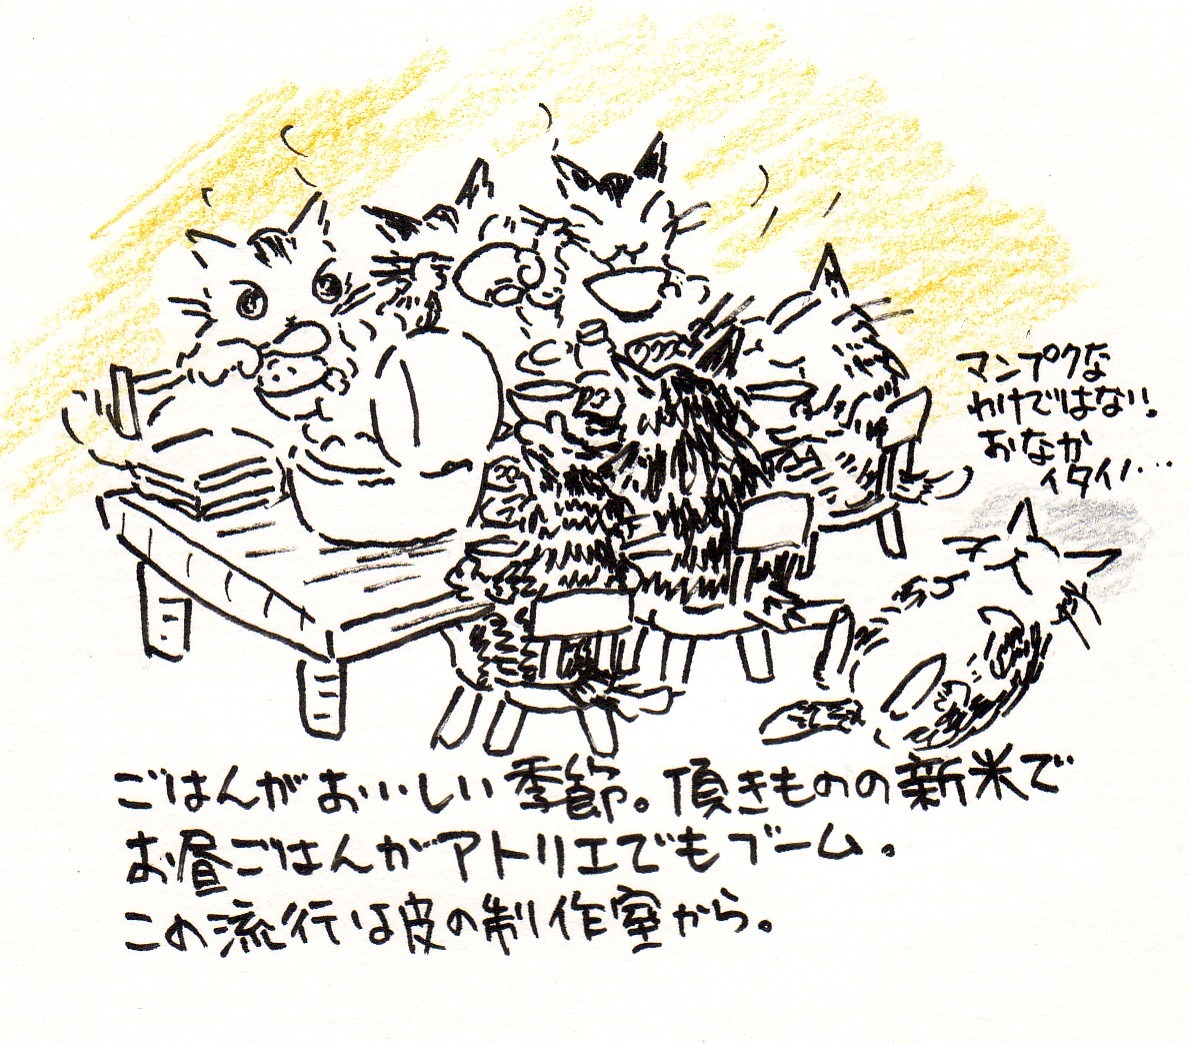 マンプクな
わけではない。
おなか
イタイ…
ごはんがおいしい季節。頂きものの新米で
お昼ごはんがアトリエでもブーム。
この流行は皮の制作室から。